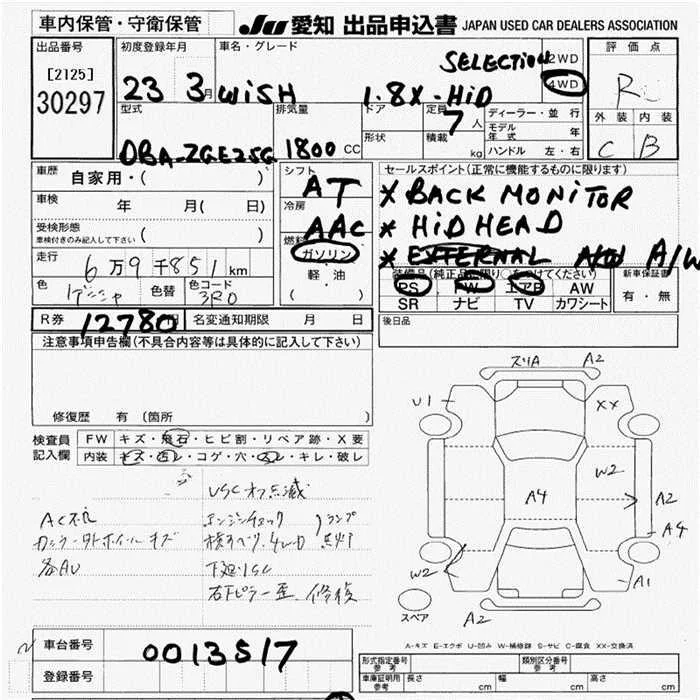 車内保管・守衛保管
JU 愛知 出品申込書 JAPAN USED CAR DEALERS ASSOCIATION
出品番号
[2125]
30297
初度登録年月
23 3月
車名・グレード
WiSH 1.8X-HiD
SELECTION
2WD
4WD
評価点
R
外装 内装
C B
型式
DBA-ZGE25G
排気量
1800 CC
ドア
形状
定員
7人
積載
kg
ディーラー・並行
モデル年式 年
ハンドル 左・右
車歴
自家用・( )
車検
年 月( 日)
受検形態
車検付きのみ記入して下さい ( )
走行
6万9千851km
色
色替
色コード
3R0
シフト
AT
冷房
AAC
燃料
ガソリン
軽・油
( )
セールスポイント(正常に機能するものに限ります)
* BACK MONITOR
* HiD HEAD
* EXTERNAL A/W
装備品(純正品に限り○をつけてください)
PS PW エアB AW
SR ナビ TV カワシート
新車保証書
有・無
R券 12780円 名変通知期限 月 日
後日品
注意事項申告欄(不具合内容等は具体的に記入して下さい)
修復歴 有 (箇所 )
検査員記入欄
FW キズ・飛石・ヒビ割・リペア跡・X要
内装 キズ・汚レ・コゲ・穴・スレ・キレ・破レ
VSCオフ点滅
AC不良 エンジンチェック ランプ
下廻りSC
スリA A2
U1 XX
W2
A4 A2
A4
W2 A1
スペア A2
A-キズ E-エクボ U-凹み W-補修跡 S-サビ C-腐食 XX-交換済
車台番号
0013517
登録番号
形式指定番号 参考
類別区分番号 参考
車庫証明用 参考 長さ cm 幅 cm 高さ cm